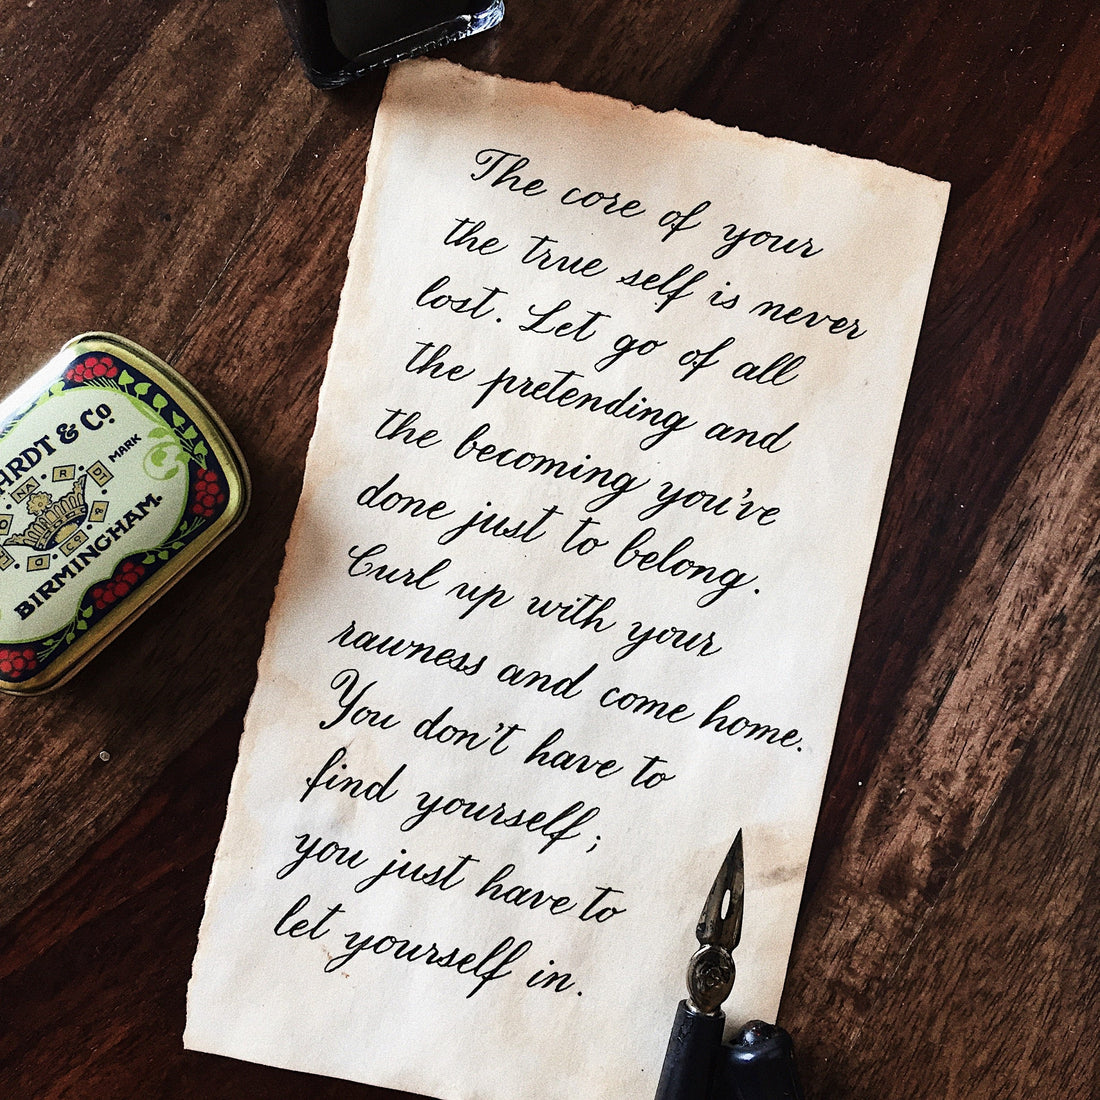 The core of your
the true self is never
lost. Let go of all
the pretending and
the becoming you've
done just to belong.
Curl up with your
rawness and come home.
You don't have to
find yourself;
you just have to
let yourself in.
ARDT & Co
MARK
BIRMINGHAM.